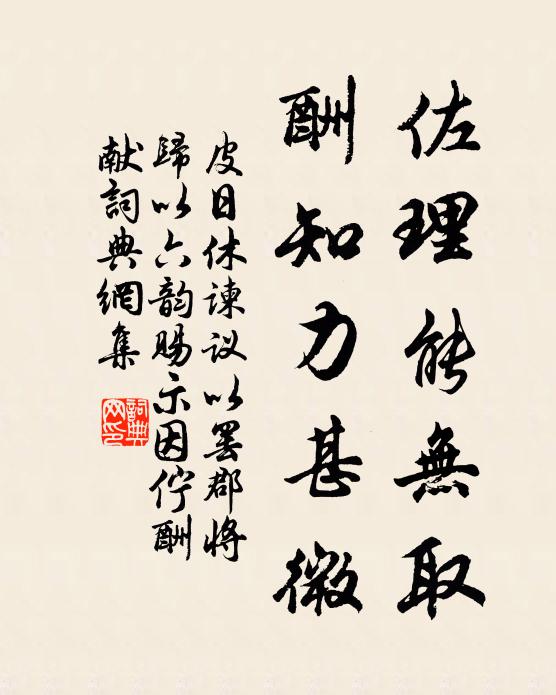 佐理能無取
酬知力甚微
皮日休諫议以罢郡將
歸以六韵賜示因伫酬
献詞典網集
詞典
网印